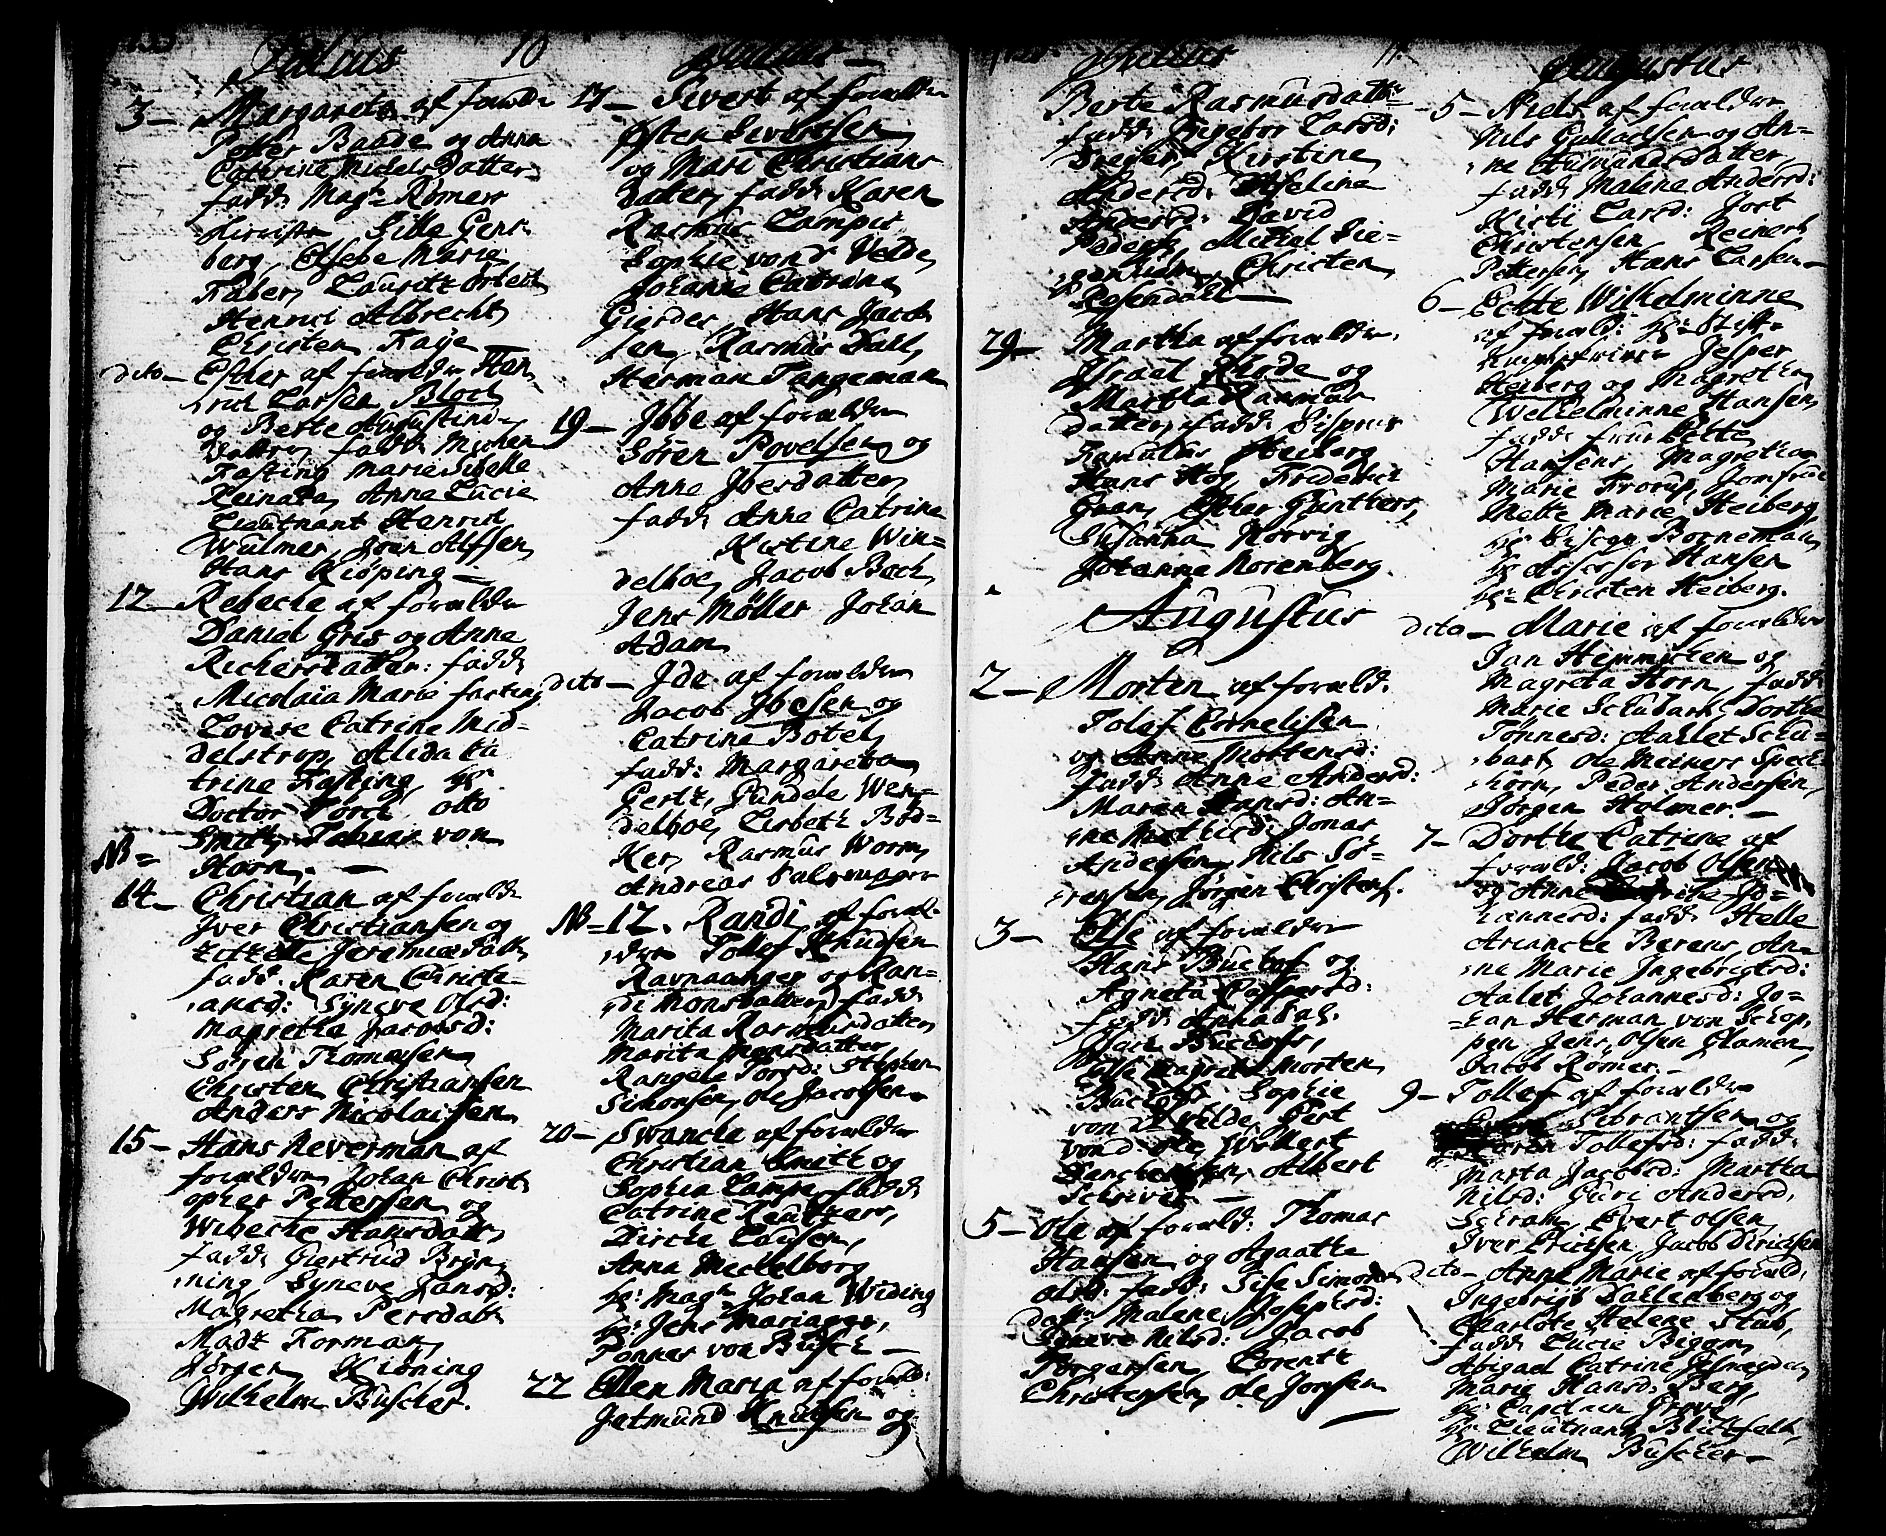 Julius 10
3 – Margareta af forældre
Petter Baade og Anna
Catrine Michels Datter
fadd: Mag: Römers
Silla Gers
berg, Elsebe Marie
Faber, Lauritz
Henrich Albrecht
Christen Faije
dito – Esther af forældre Hen
rich Larsen Bloch
og Berte Augustini
Datter, fadd: Michen
Fasting Marie Sibelle
Reinata, Anne Lucie
Lieutnant Henrich
Wulmer, Joen Alfsen
Hans Kiöping –
12 – Rebecke af forældre
Daniel Gris og Anne
Richersdatter: fadd:
Nicolaia Marie fasting
Lovise Catrine Mid-
delstrop, Alida Ca
trine Fasting, hr:
Doctor Torck Otto
Smith, Tobias von
NB = Horn. –
14 – Christian af foræld:
Iver Christiansen og
Zitzele Jeremiæ Datt:
fadd: Karen Christi-
ansd: Syneve Olsd:
Magretha Jacobsd:
Sören Thomassen
Christen Christiansen
Anders Nicolaisen
15 – Hans Reverman af
forældre Johan Christ
opher Pettersen og
Wibecke Hansdatt:
fadd: Giertrud Bryn
ning Syneve Jansd:
Magretha Persdatt
Madz Forman
Jörgen Kiöning
Wilhelm Büscher.
Julius –
17 – Sivert af forældre
Østen Sivertsen
og Mari Christians
datter, fadd: Karen
Rasmus Lampis
Sophie vond Velde
Johanne Catrine
Gierdes, Hans Jacob
sen, Rasmus Dall
Herman Tengeman
19 – Ibbe af forældre
Sören Povelsen og
Anne Ibersdatter
fadd: Anne Catrine
Kistine Win-
delboe, Jacob Boch
Jens Möller Johan
Adam
dito – Ide af forældre
Jacob Ibesen og
Catrine Botel
fadd: Margareta
Gertz, Gundele Wen-
delboe, Lisbeth Bød-
Ker, Rasmus Worm
Andreas
NB = 12. Randi af foræl-
dre Tollef Knudsen
Ravnaanger og Ran-
di Monsdatter, fadd:
Marita Rasmusdatter
Marita Monsdatter
Rangele Torsd: Stephen
Simonsen, ole Jacobsen
20 – Swancke af forældre
Christian Smith og
Sophia Lampe, fadd:
Catrine Reutzers,
Dircke Lausen,
Anna Meckelborg
hr: Magr Johan Widing
hr: Jens Mariager,
Tonnes von Büsch –
22 Ellen Maria af foræld:
Jetmund Knudsen og
Julius 11
Berte Rasmusdatter
fadd: Ingebor Larsd:
Kirstine
Andersd: Abeline
Andersd: David
Michel Sie-
Christen
Rosendall –
29 – Martha af forældre
Israel Rhode og
Martha Rasmus
datter, fadd:
Famulus Heiberg
Hans Hög, Friderich
Gran, Esther Güntters,
Susanna Norvig
Johanne Norenberg.
Augustus
2 – Morten af foræld:
Tolaf Cornelisen
og Anne Mortensd:
fadd: Anne Andersd:
Maren Hansd: An-
ne Mathisd: Jonas
Andersen, Nils Sö-
rensen, Jörgen Christens.
3 – Else af forældre
Hans Buchof og
Agneta Caspersd:
fadd: Anna Cat.
Buchofs,
Else Magreta Morten
Buchof Sophie
von d Welde, Gert
vond: ole Wolkert
Albert
Schriver –
5 – Ole af foræld: Thomas
Hansen og Agaatte
olsd: fadd: Sise Simons
datt: Malene Josephsd:
Syneve Nilsd: Jacob
Torgersen, Lorentz
Christensen, ole Jonsen
Augustus
5 – Niels af forældre
Nils Gullachsen og An-
ne Aamandsdatter
fadd: Malene Andersd:
Kisti Larsd: Jost
Christensen Reinert
Pettersen, Hans Larsen –
6 – Eette Wilhelminne
af foræld: hr: Stift
Jesper
Heiberg og Magretha
Welhelminne Hansen
fadd: frue Eette
Hansens, Magretha
Marie Frorup, Jomfrue
Mette Marie Heiberg,
hr: bisсop Borneman
hr: Assessor Hansen
hr: Christen Heiberg.
dito – Marie af forældre
Jan Hemmichen og
Magreta Horn, fadd:
Marie Schubart Dorthe
Tønnesd: Aahlet Schu-
bart, ole Meiners Speck
hörn, Peder Andersen,
Jörgen Holmer. –
7 – Dorthe Catrine af
foræld: Jacob Olsen
og Anne Jo-
hannesd: fadd: Helle
Ariancke Berens, An-
ne Marie Ingebrigtsd:
Aalet Johannesd: Jo-
han Herman von Schop,
pen Jens Olsen Glamen
Jacob Römer. –
9 – Tollef af forældre
Sibrantsen og
Karen Tollefsd: fadd:
Marta Jacobsd: Martha
Nilsd: Guri Andersd,
Schram, Evert olsen
Iver Ericksen Jacob Diricksen
dito – Anne Marie af foræld:
Ingebrigt Dahlenberg og
Charlote Helene Stub,
fadd: Lucie Bigom
Abigael Catrine
Marie Hansd: Berg,
hr: Capelain Grove
hr: Lieutnant Blichfeldt,
Wilhelm Büscher –